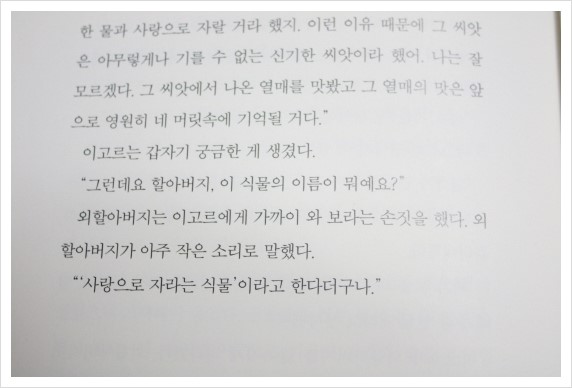 한 물과 사랑으로 자랄 거라 했지. 이런 이유 때문에 그 씨앗
은 아무렇게나 기를 수 없는 신기한 씨앗이라 했어. 나는 잘
모르겠다. 그 씨앗에서 나온 열매를 맛봤고 그 열매의 맛은 앞
으로 영원히 네 머릿속에 기억될 거다.”
이고르는 갑자기 궁금한 게 생겼다.
“그런데요 할아버지, 이 식물의 이름이 뭐예요?”
외할아버지는 이고르에게 가까이 와 보라는 손짓을 했다. 외
할아버지가 아주 작은 소리로 말했다.
“‘사랑으로 자라는 식물’이라고 한다더구나.”